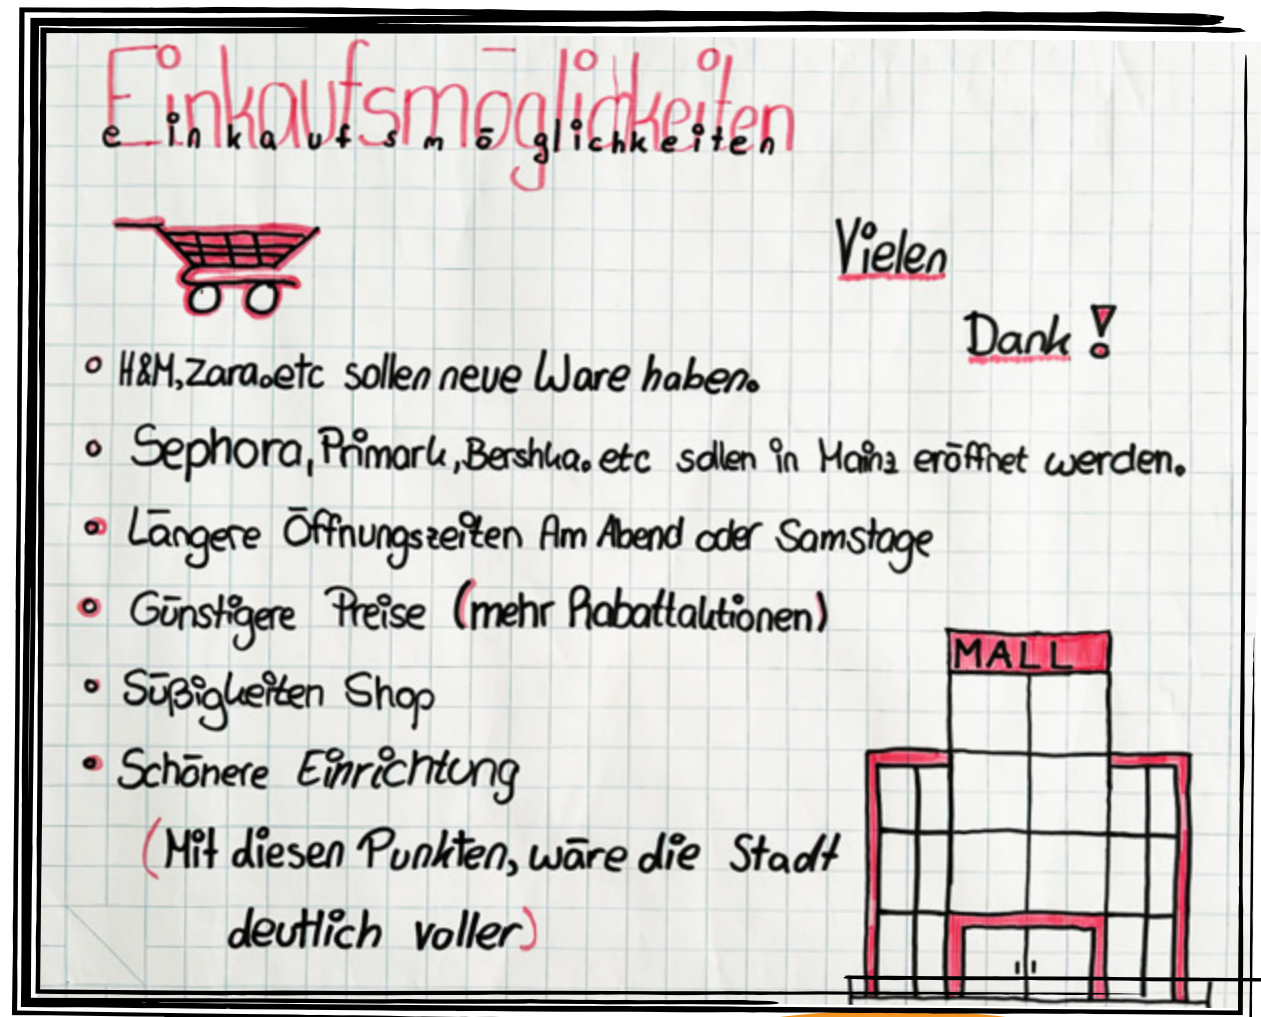 Einkaufsmöglichkeiten
einkaufsmöglichkeiten
Vielen
Dank!
H&M, Zara. etc sollen neue Ware haben.
Sephora, Primark, Bershka. etc sollen in Mainz eröffnet werden.
Längere Öffnungszeiten Am Abend oder Samstage
Günstigere Preise (mehr Rabattaktionen)
Süßigkeiten Shop
Schönere Einrichtung
(Mit diesen Punkten, wäre die Stadt
deutlich voller)
MALL